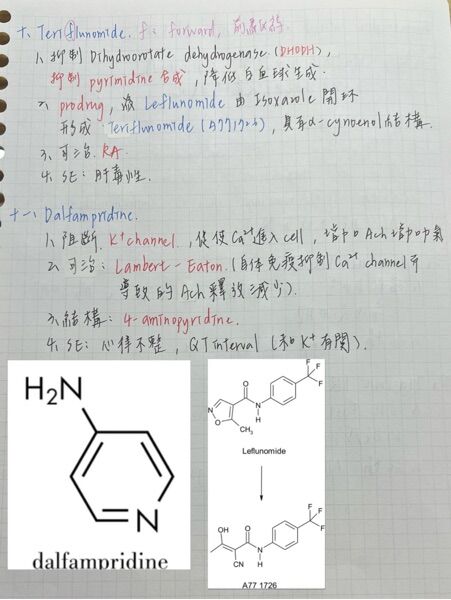 十、Teriflunomide. f: forward, 前驅
1. 抑制 Dihydroorotate dehydrogenase (DHODH),
抑制 pyrimidine 合成, 降低白血球生成.
2. prodrug, 為 Leflunomide 由 Isoxazole 開環
形成 Teriflunomide (A771726), 具有 α-cynoenol 結構.
3. 可治 RA.
4. SE: 肝毒性.
十一、Dalfampridine.
1. 阻斷 K⁺ channel, 促使 Ca²⁺ 進入 cell, 增加 Ach
2. 可治: Lambert-Eaton. (自体免疫抑制 Ca²⁺ channel 所
導致的 Ach 釋放減少).
3. 結構: 4-aminopyridine.
4. SE: 心律不整, QT interval (和 K⁺ 有關).
H₂N
N
dalfampridine
F
F
F
O
N
H
N
O
CH₃
Leflunomide
F
F
F
OH
O
N
H
CN
A77 1726